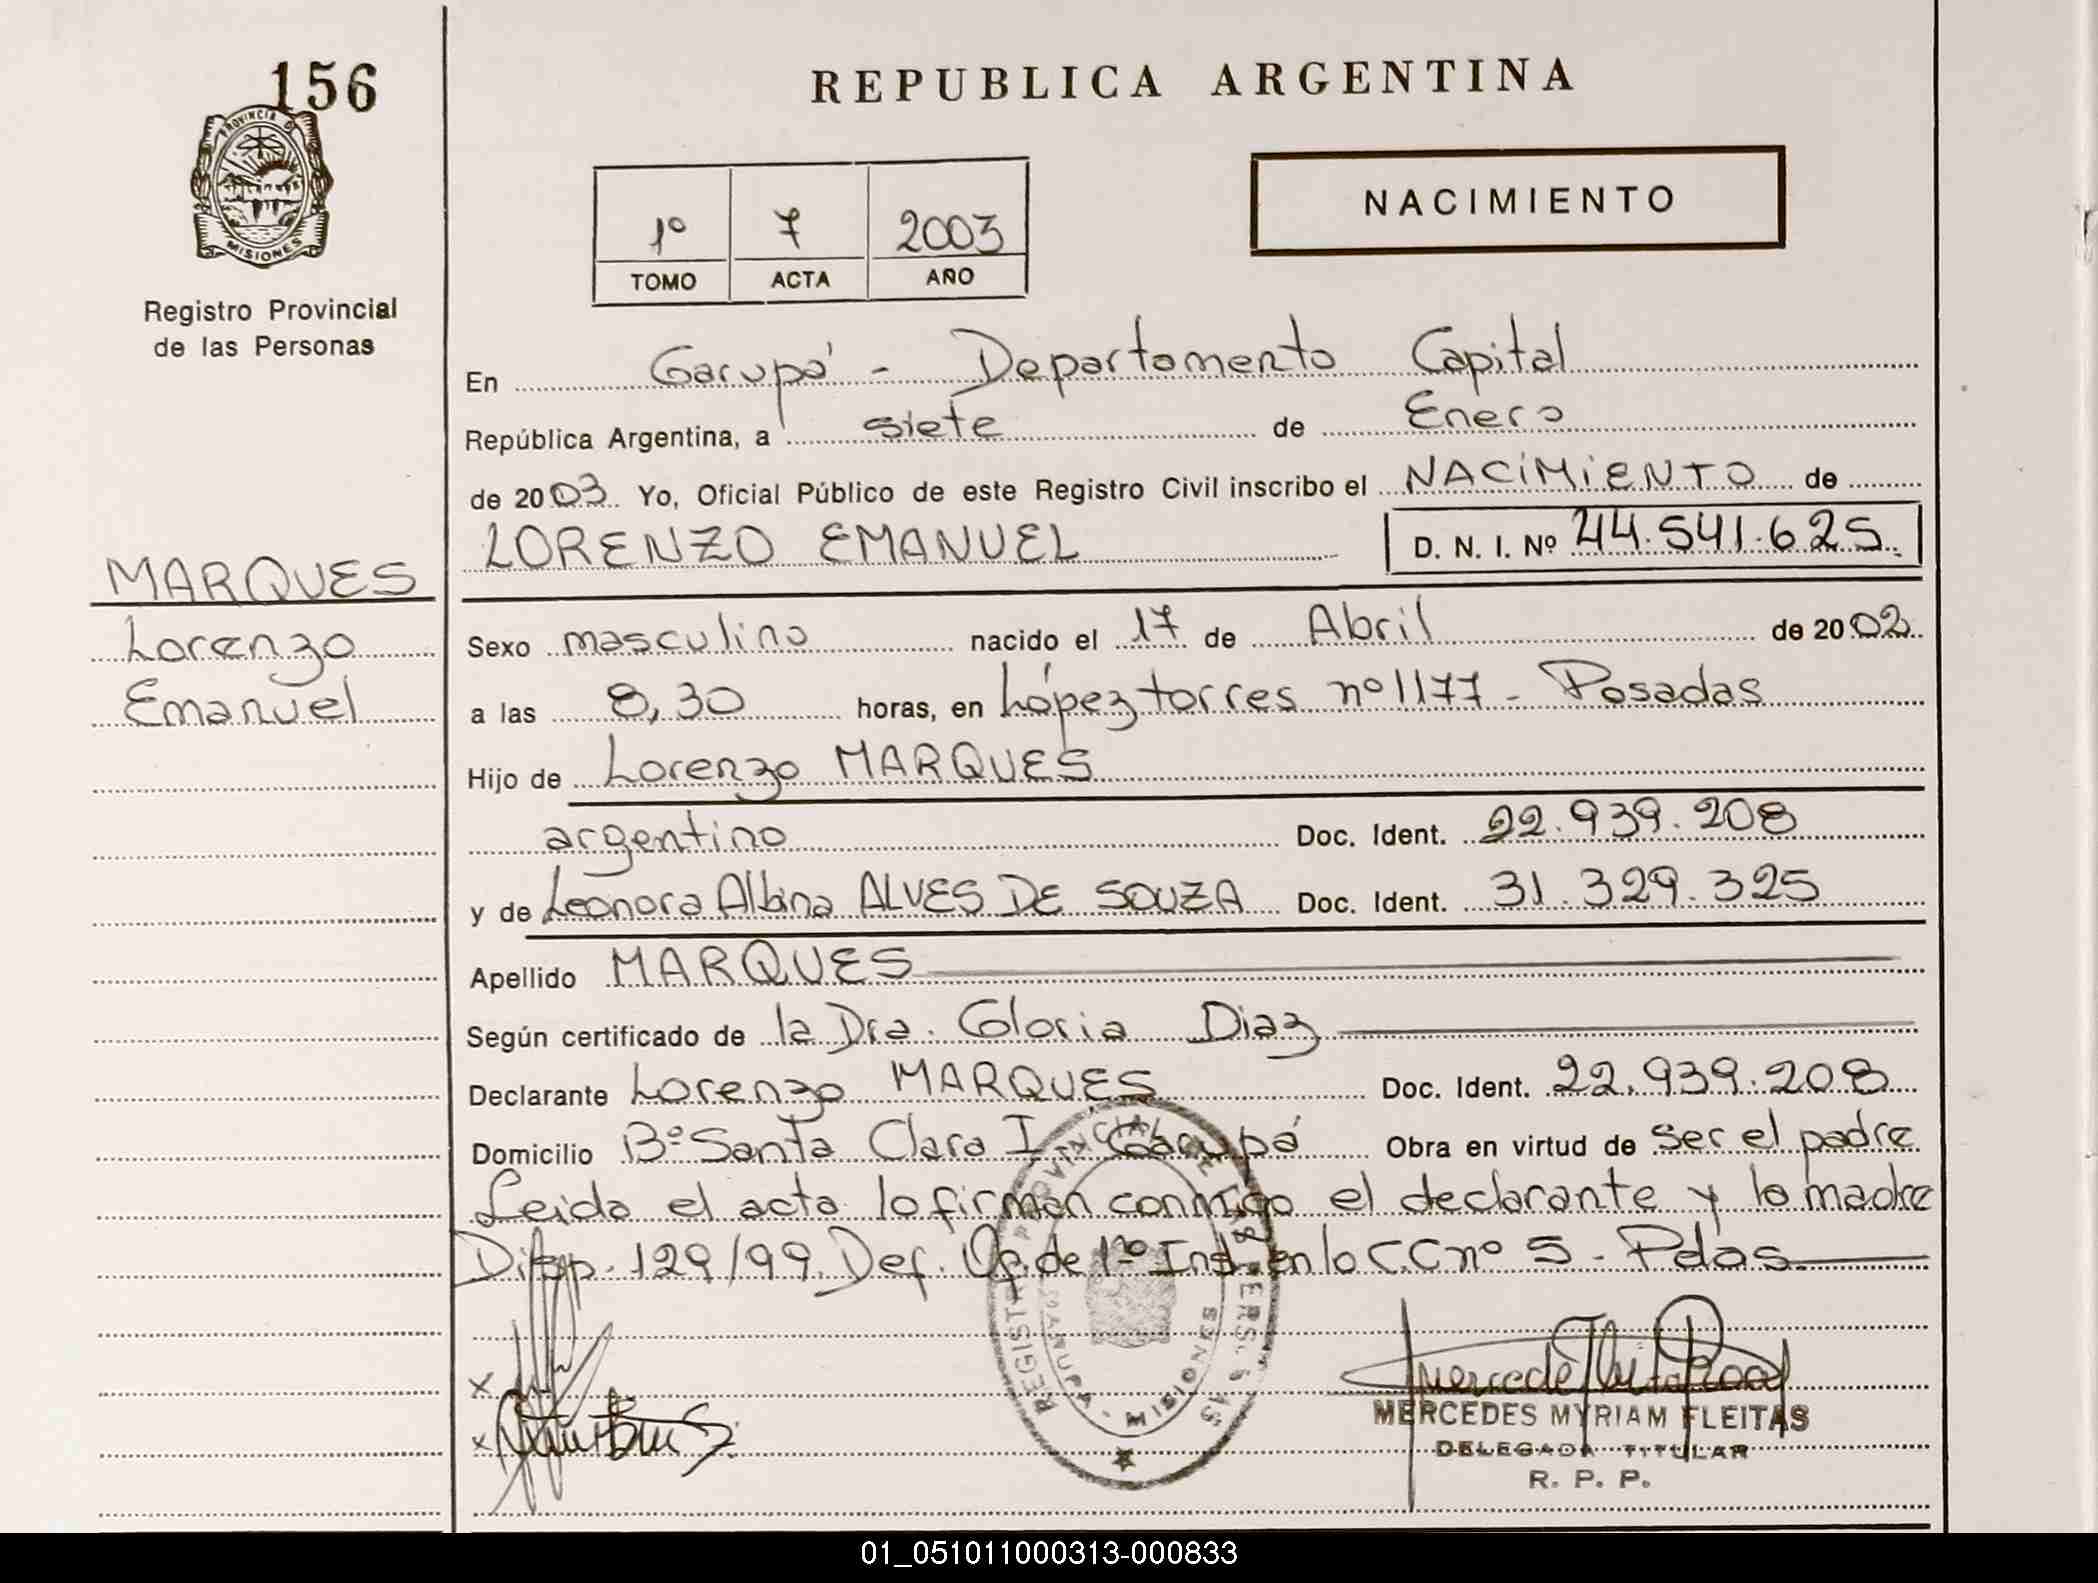 156
PROVINCIA DE
MISIONES
Registro Provincial
de las Personas
MARQUES
Lorenzo
Emanuel
REPUBLICA ARGENTINA
1º 7 2003
TOMO ACTA AÑO
NACIMIENTO
En Garupá - Departamento Capital
República Argentina, a siete de Enero
de 2003. Yo, Oficial Público de este Registro Civil inscribo el NACIMIENTO de
LORENZO EMANUEL D. N. I. Nº 44.541.625
Sexo masculino nacido el 17 de Abril de 2002
a las 8,30 horas, en López torres nº 1177 - Posadas
Hijo de Lorenzo MARQUES
argentino Doc. Ident. 22.939.208
y de Leonora Albina ALVES DE SOUZA Doc. Ident. 31.329.325
Apellido MARQUES
Según certificado de la Dra. Gloria Diaz
Declarante Lorenzo MARQUES Doc. Ident. 22.939.208
Domicilio Bº Santa Clara I Garupá Obra en virtud de ser el padre
Leida el acta lo firman conmigo el declarante y la madre
Disp. 129/99. Def. Of. de 1º Inst. en lo C.C nº 5 - Pdas
GARUPA - MISIONES
x
x
MERCEDES MYRIAM FLEITAS
DELEGADA TITULAR
R. P. P.
01_051011000313-000833